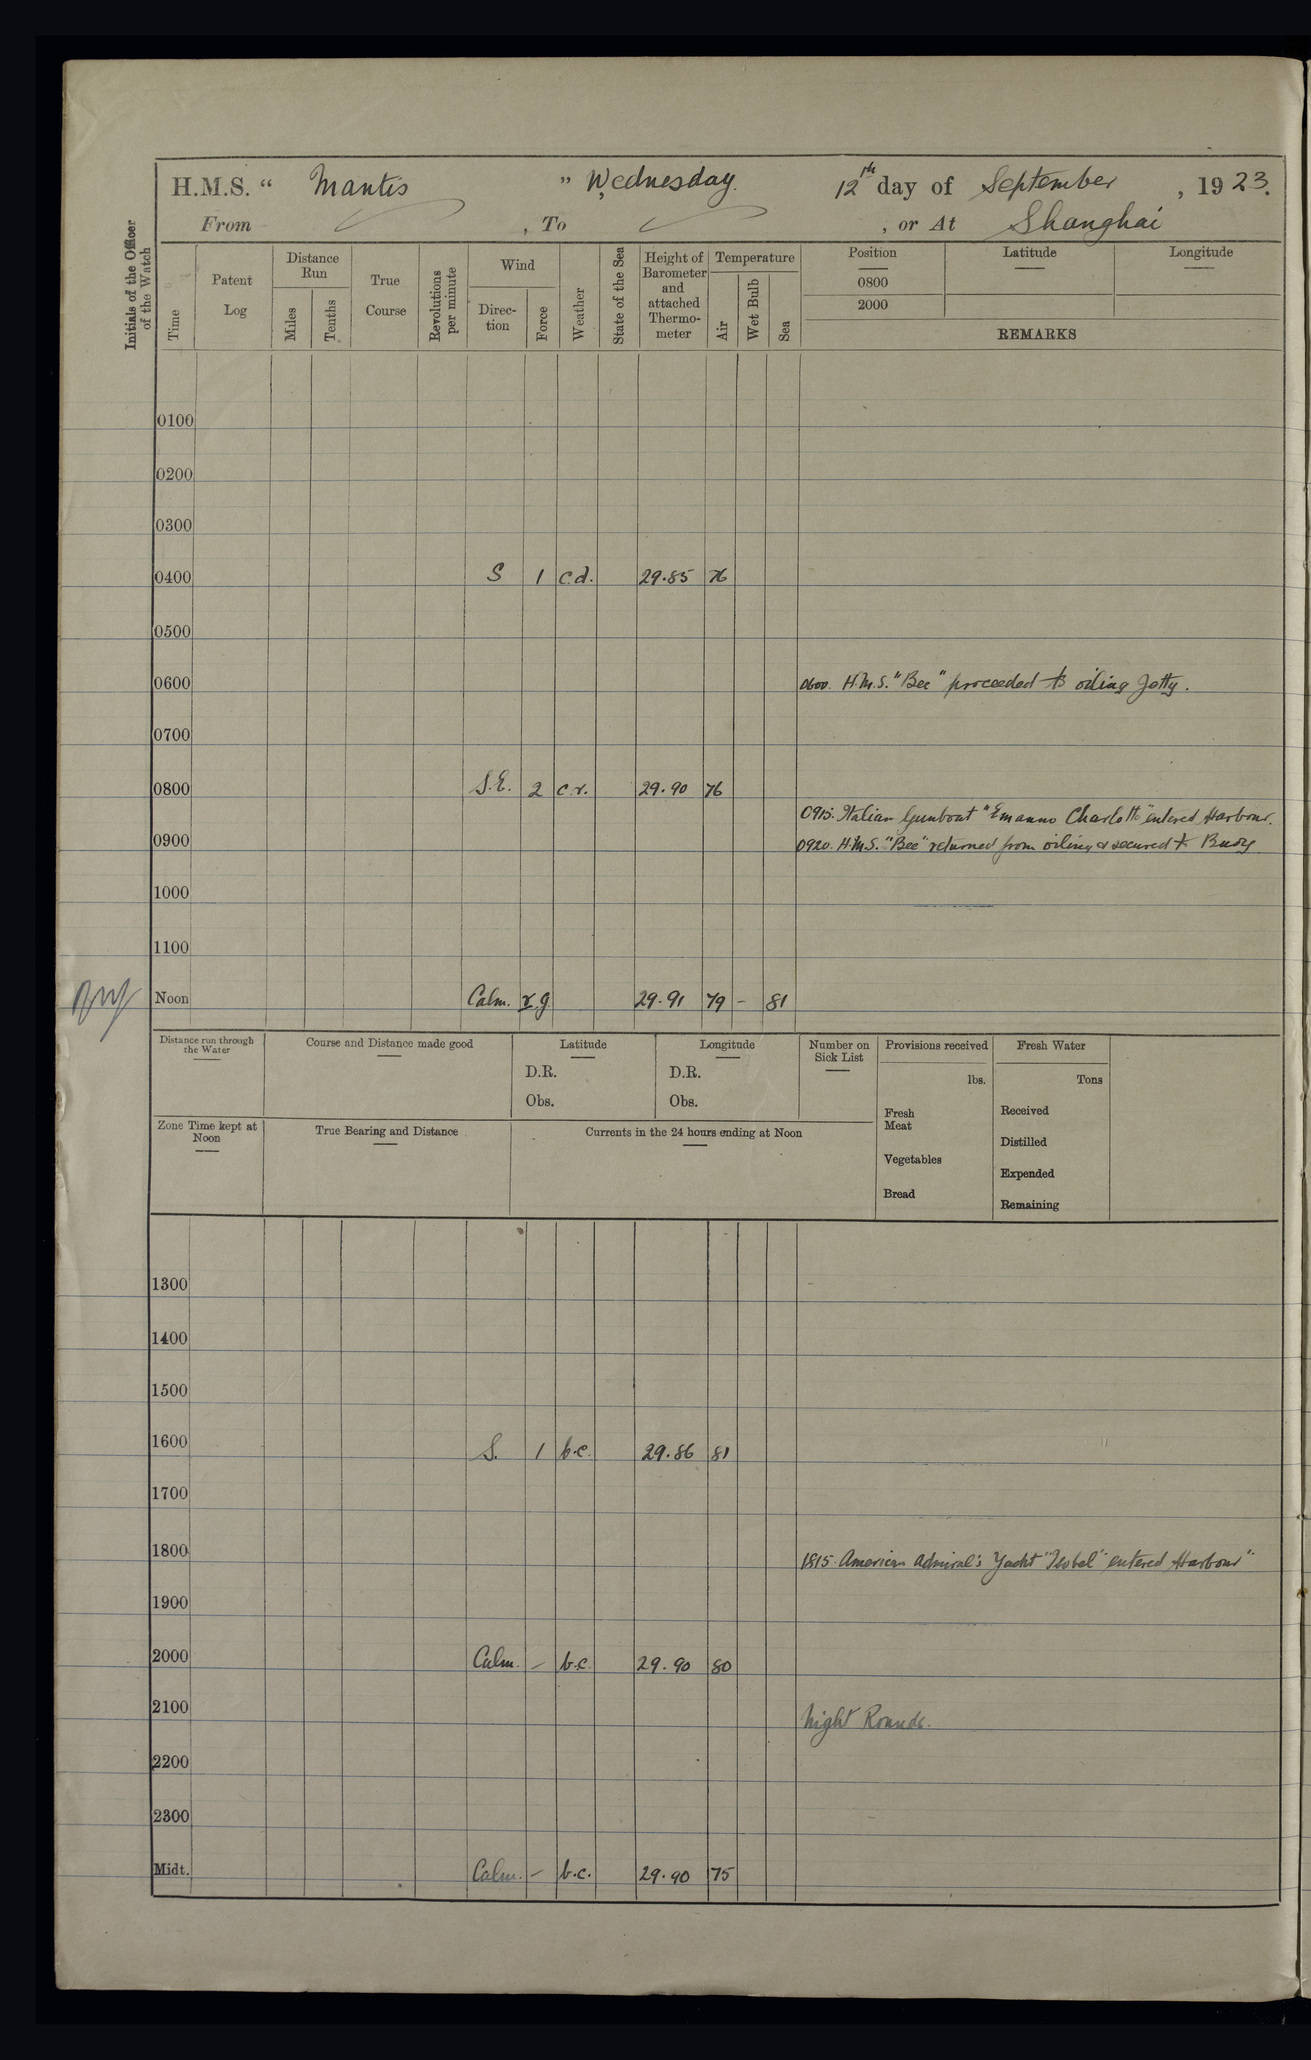 H.M.S. “ Mantis ” Wednesday. 12th day of September , 1923.
From , To , or At Shanghai
Initials of the Officer of the Watch
Time
Patent Log
Distance Run
Miles
Tenths
True Course
Revolutions per minute
Wind
Direc-tion
Force
Weather
State of the Sea
Height of Barometer and attached Thermo-meter
Temperature
Air
Wet Bulb
Sea
Position Latitude Longitude
0800
2000
REMARKS
0100
0200
0300
0400 S 1 c.d. 29.85 76
0500
0600 0600. H.M.S. "Bee" proceeded to oiling Jetty.
0700
0800 S.E. 2 c.r. 29.90 76
0915. Italian Gunboat "Emanno Charlotti" entered Harbour.
0900 0920. H.M.S. "Bee" returned from oiling & secured to Buoy
1000
1100
Noon Calm. r.g 29.91 79 - 81
Distance run through the Water
Course and Distance made good
Latitude
D.R.
Obs.
Longitude
D.R.
Obs.
Number on Sick List
Provisions received
lbs.
Fresh Meat
Vegetables
Bread
Fresh Water
Tons
Received
Distilled
Expended
Remaining
Zone Time kept at Noon
True Bearing and Distance
Currents in the 24 hours ending at Noon
1300
1400
1500
1600 S. 1 b.c. 29.86 81
1700
1800 1815. American Admiral's Yacht "Isobel" entered Harbour"
1900
2000 Calm. - b.c. 29.90 80
2100 Night Rounds.
2200
2300
Midt. Calm. - b.c. 29.90 75